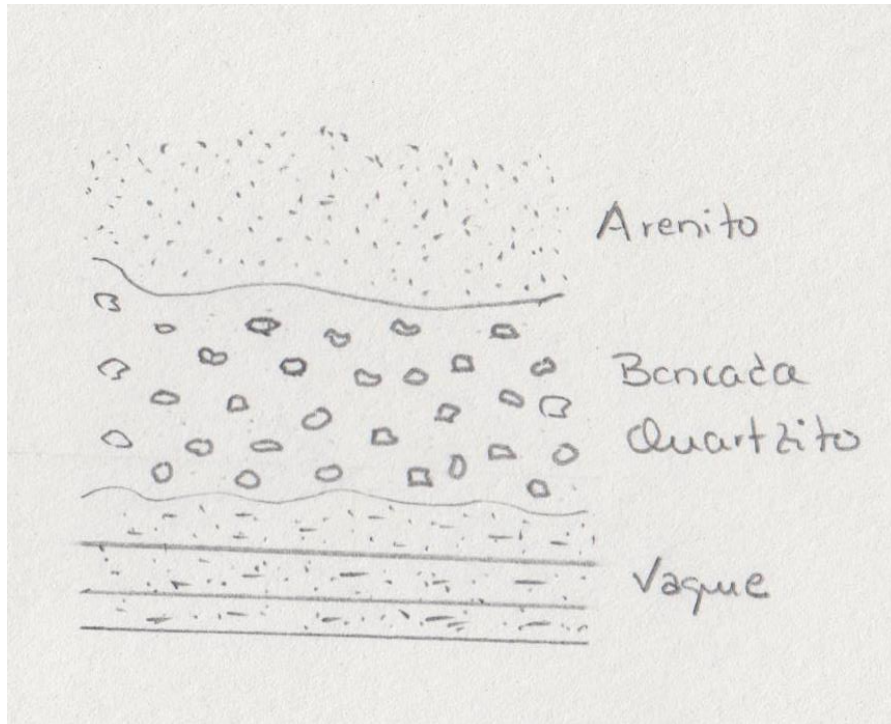 Arenito
Bancada
Quartzito
Vaque